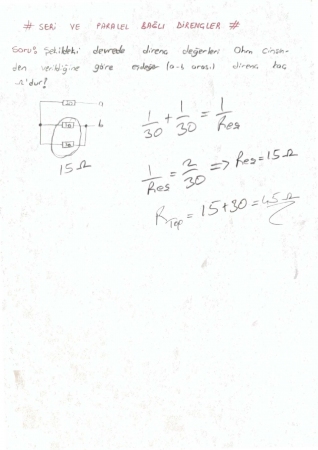 # SERİ VE PARALEL BAĞLI DİRENÇLER #
Soru: Şekildeki devrede direnç değerleri Ohm cinsin-
den verildiğine göre eşdeğer (a-b arası) direnç kaç
Ω'dur?
30 a
30 b
30
15 Ω
1/30 + 1/30 = 1/Reş
1/Reş = 2/30 => Reş = 15 Ω
RTop = 15+30 = 45 Ω